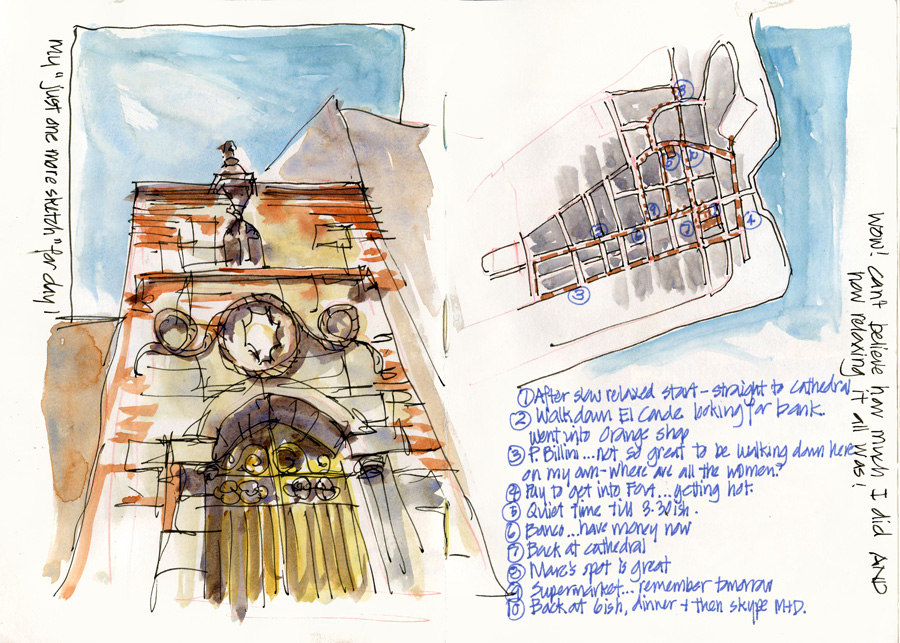 My "just one more sketch" for day!
① After slow relaxed start - straight to cathedral
② Walk down El Conde looking for bank.
Went into Orange shop
③ P. Billini...not so great to be walking down here
on my own - where are all the women?
④ Pay to get into Fort...getting hot.
⑤ Quiet time till 3.30ish.
⑥ Banco...have money now
⑦ Back at cathedral
⑧ Marc's spot is great
⑨ Supermarket...remember tomorrow
⑩ Back at 6ish, dinner + then skype M+D.
WOW! Cant believe how much I did AND
how relaxing it all was!
8
10
4
9
7
6
5
3